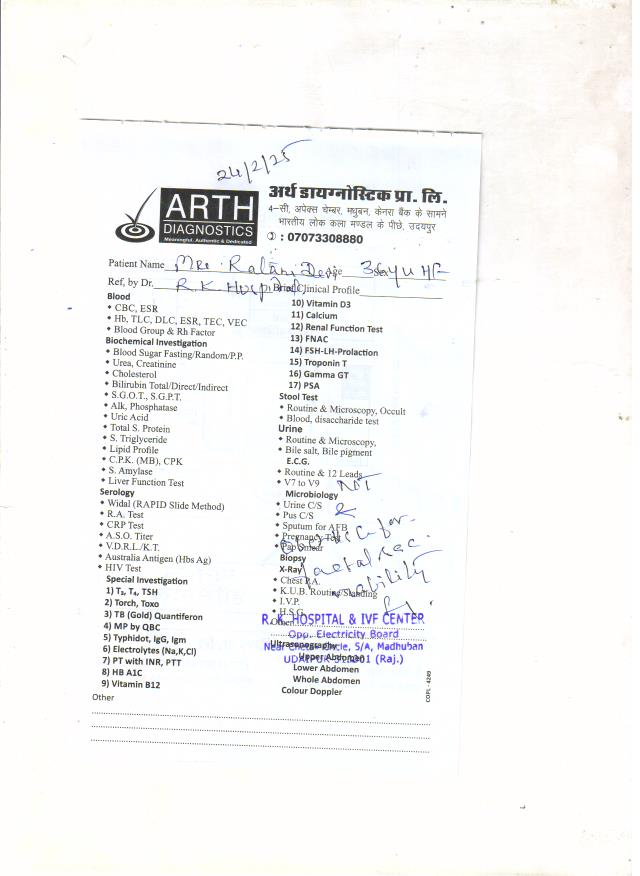 24/2/25
ARTH
DIAGNOSTICS
Meaningful, Authentic & Dedicated
अर्थ डायग्नोस्टिक प्रा. लि.
4–सी, अपेक्स चेम्बर, मधुबन, केनरा बैंक के सामने
भारतीय लोक कला मण्डल के पीछे, उदयपुर
: 07073308880
Patient Name Mrs. Ratani Devi
Ref, by Dr. R.K. Hospital Brief Clinical Profile
Blood
CBC, ESR
Hb, TLC, DLC, ESR, TEC, VEC
Blood Group & Rh Factor
Biochemical Investigation
Blood Sugar Fasting/Random/P.P.
Urea, Creatinine
Cholesterol
Bilirubin Total/Direct/Indirect
S.G.O.T., S.G.P.T.
Alk, Phosphatase
Uric Acid
Total S. Protein
S. Triglyceride
Lipid Profile
C.P.K. (MB), CPK
S. Amylase
Liver Function Test
Serology
Widal (RAPID Slide Method)
R.A. Test
CRP Test
A.S.O. Titer
V.D.R.L./K.T.
Australia Antigen (Hbs Ag)
HIV Test
Special Investigation
1) T₃, T₄, TSH
2) Torch, Toxo
3) TB (Gold) Quantiferon
4) MP by QBC
5) Typhidot, IgG, Igm
6) Electrolytes (Na,K,Cl)
7) PT with INR, PTT
8) HB A1C
9) Vitamin B12
Other
10) Vitamin D3
11) Calcium
12) Renal Function Test
13) FNAC
14) FSH-LH-Prolaction
15) Troponin T
16) Gamma GT
17) PSA
Stool Test
Routine & Microscopy, Occult
Blood, disaccharide test
Urine
Routine & Microscopy,
Bile salt, Bile pigment
E.C.G.
Routine & 12 Leads
V7 to V9 NST
Microbiology
Urine C/S &
Pus C/S
Sputum for AFB
Pregnancy Test for
Pap Smear
Biopsy
X-Ray
Chest P.A.
K.U.B. Routing/Standing
I.V.P.
H.S.G.
Other
R.K. HOSPITAL & IVF CENTER
Opp. Electricity Board
Near Circle, 5/A, Madhuban
UDAIPUR 313001 (Raj.)
Ultrasonography
Upper Abdomen
Lower Abdomen
Whole Abdomen
Colour Doppler
COPL - 4249